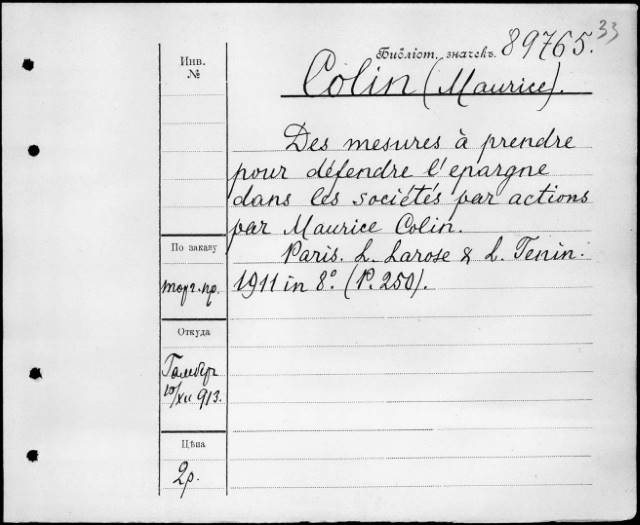 33
Библіот. значекъ. 89765.
Инв.
№
Colin (Maurice).
Des mesures à prendre
pour défendre l'epargne
dans les sociétés par actions
par Maurice Colin.
Paris. L. Larose & L. Tenin.
1911 in 8º. (P. 250).
По заказу
торг. пр.
Откуда
10/XII 913.
Цѣна
2р.